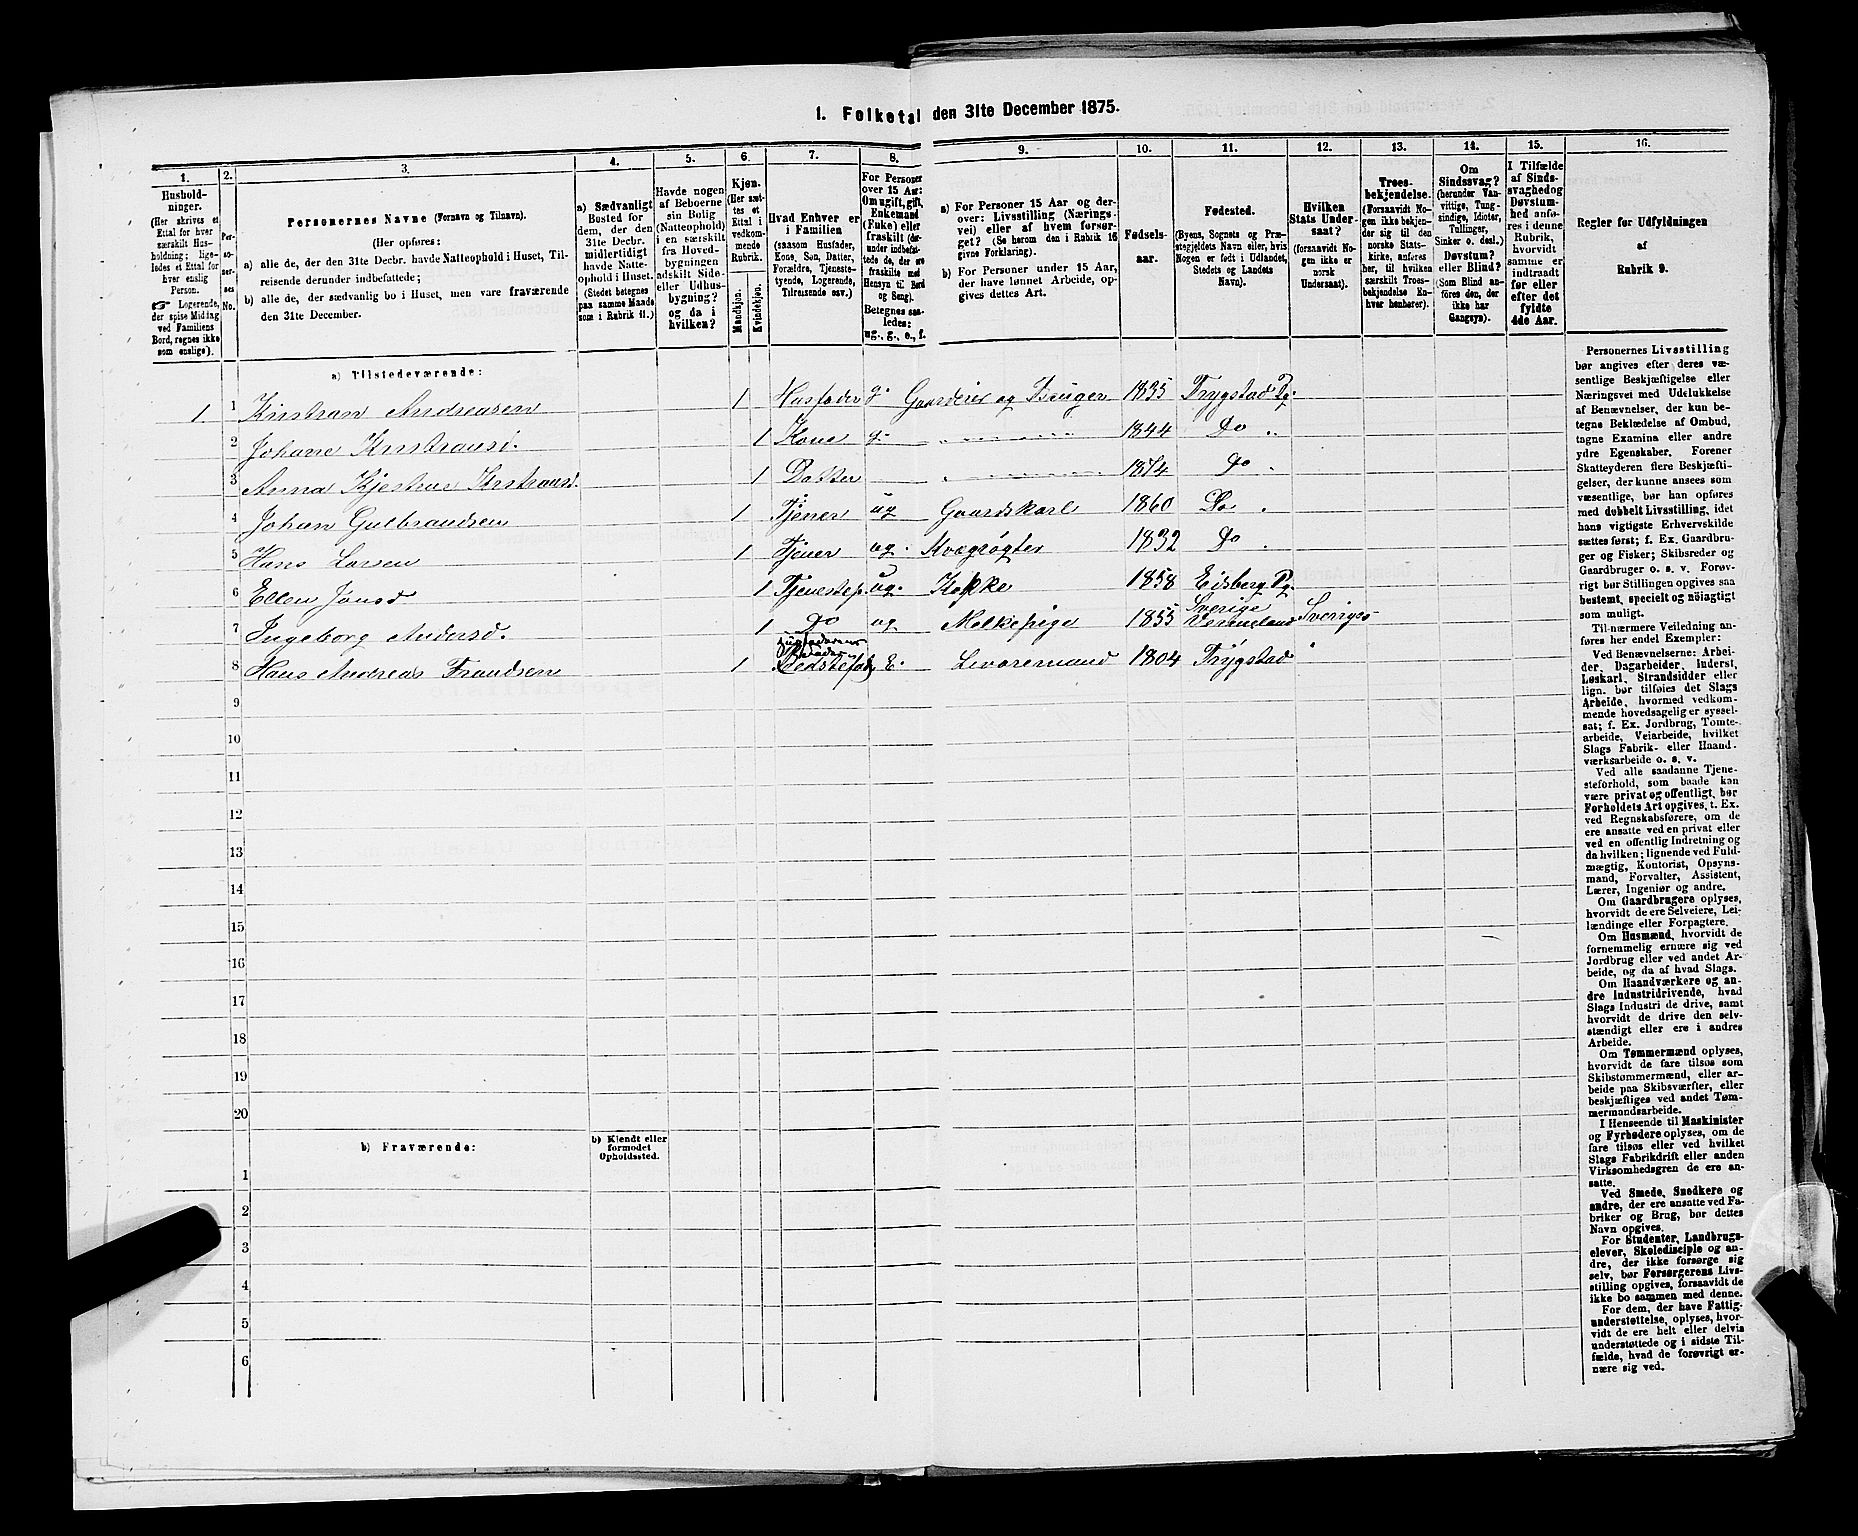 1. Folketal den 31te December 1875.
1.
Hushold-
ninger.
(Her skrives et
Ettal for hver
særskilt Hus-
holdning; lige-
ledes et Ettal for
hver enslig
Person.
Logerende,
der spise Middag
ved Familiens
Bord, regnes ikke
som enslige).
2.
Per-
so-
ner-
nes
No.
3.
Personernes Navne (Fornavn og Tilnavn).
(Her opføres:
a) alle de, der den 31te Decbr. havde Natteophold i Huset, Til-
reisende derunder indbefattede;
b) alle de, der sædvanlig bo i Huset, men vare fraværende
den 31te December.
4.
a) Sædvanligt
Bosted for
dem, der den
31te Decbr.
midlertidigt
havde Natte-
ophold i Huset.
(Stedet betegnes
paa samme Maade
som i Rubrik 11.)
5.
Havde nogen
af Beboerne
sin Bolig
(Natteophold)
i en særskilt
fra Hoved-
bygningen
adskilt Side-
eller Udhus-
bygning?
og da i
hvilken?
6.
Kjøn.
(Her sæt-
tes et
Ettal i
vedkom-
mende
Rubrik.
Mandkjøn.
Kvindekjøn.
7.
Hvad Enhver er
i Familien
(saasom Husfader,
Kone, Søn, Datter,
Forældre, Tjeneste-
tyende, Logerende,
Tilreisende osv.)
8.
For Personer
over 15 Aar:
Om ugift, gift,
Enkemand
(Enke) eller
fraskilt (der-
under indbefat-
tede de, der ere
fraskilte med
Hensyn til Bord
og Seng).
Betegnes saa-
ledes:
ug., g., e., f.
9.
a) For Personer 15 Aar og der-
over: Livsstilling (Nærings-
vei) eller af hvem forsør-
get? (Se herom den i Rubrik 16
givne Forklaring).
b) For Personer under 15 Aar,
der have lønnet Arbeide, op-
gives dettes Art.
10.
Fødsels-
aar.
11.
Fødested.
(Byens, Sognets og Præ-
stegjeldets Navn eller, hvis
Nogen er født i Udlandet,
Stedets og Landets
Navn).
12.
Hvilken
Stats Under-
saat?
(forsaavidt No-
gen ikke er
norsk
Undersaat).
13.
Troes-
bekjendelse.
(Forsaavidt No-
gen ikke bekjen-
der sig til den
norske Stats-
kirke, anføres
her, til hvilken
særskilt Troes-
bekjendelse En-
hver henhører).
14.
Om
Sindssvag?
(herunder Van-
vittige, Tung-
sindige, Idioter,
Tullinger,
Sinker o. desl.)
Døvstum?
eller Blind?
(Som Blind an-
føres den, der
ikke har
Gangsyn).
15.
I Tilfælde
af Sinds-
svaghed og
Døvstum-
hed anfø-
res i denne
Rubrik,
hvorvidt
samme er
indtraadt
før eller
efter det
fyldte
4de Aar.
16.
Regler for Udfyldningen
af
Rubrik 9.
a) Tilstedeværende:
1. 1 Kristian Andreasen 1 Husfader g. Gaardeier og Bruger 1835 Trygstad Pg.
2 Johane Kristiansd. 1 Kone g. 1844 Do
3 Anna Kjestine Kristiansd. 1 Datter 1874 Do
4 Johan Gulbrandsen 1 Tjener ug Gaardskarl 1860 Do
5 Hans Larsen 1 Tjener ug. Kvægrøgter 1832 Do
6 Ellen Jonsd 1 Tjenestep. ug. Kokke 1858 Eidsberg Pg.
7 Ingeborg Andersd. 1 Do ug Melkepige 1855 Sverige Vermeland Sveriges
8 Hans Andreas Frandsen 1 E. Livøremand 1804 Trygstad
9
10
11
12
13
14
15
16
17
18
19
20
b) Fraværende:
b) Kjendt eller
formodet
Opholdssted.
1
2
3
4
5
6
Personernes Livsstilling
bør angives efter deres væ-
sentlige Beskjæftigelse eller
Næringsvei med Udelukkelse
af Benævnelser, der kun be-
tegne Beklædelse af Ombud,
tagne Examina eller andre
ydre Egenskaber. Forener
Skatteyderen flere Beskjæfti-
gelser, der kunne ansees som
væsentlige, bør han opføres
med dobbelt Livsstilling, idet
hans vigtigste Erhvervskilde
sættes først; f. Ex. Gaardbru-
ger og Fisker; Skibsreder og
Gaardbruger o. s. v. Forøv-
rigt bør Stillingen opgives saa
bestemt, specielt og nøiagtigt
som muligt.
Til nærmere Veiledning an-
føres her endel Exempler:
Ved Benævnelserne: Arbei-
der, Dagarbeider, Inderst,
Løskarl, Strandsidder eller
lign. bør tilføies det Slags
Arbeide, hvormed vedkom-
mende hovedsagelig er syssel-
sat; f. Ex. Jordbrug, Tomte-
arbeide, Veiarbeide, hvilket
Slags Fabrik- eller Haand-
værksarbeide o. s. v.
Ved alle saadanne Tjene-
steforhold, som baade kan
være privat og offentligt, bør
Forholdets Art opgives, t. Ex.
ved Regnskabsførere, om de
ere ansatte ved en privat eller
ved en offentlig Indretning og
da hvilken; lignende ved Fuld-
mægtig, Kontorist, Opsyns-
mand, Forvalter, Assistent,
Lærer, Ingeniør og andre.
Om Gaardbrugere oplyses,
hvorvidt de ere Selveiere, Lei-
lændinge eller Forpagtere.
Om Husmænd, hvorvidt de
fornemmelig ernære sig ved
Jordbrug eller ved andet Ar-
beide, og da af hvad Slags.
Om Haandværkere og an-
dre Industridrivende, hvad
Slags Industri de drive, samt
hvorvidt de drive den selv-
stændigt eller ere i andres
Arbeide.
Om Tømmermænd oplyses,
hvorvidt de fare tilsøs som
Skibstømmermænd, eller ar-
beide paa Skibsværfter, eller
beskjæftiges ved andet Tøm-
mermandsarbeide.
I Henseende til Maskinister
og Fyrbødere oplyses, om de
fare tilsøs eller ved hvilket
Slags Fabrikdrift eller anden
Virksomhedsgren de ere an-
satte.
Ved Smede, Snedkere og
andre, der ere ansatte ved Fa-
briker og Brug, bør dettes
Navn opgives.
For Studenter, Landbrugs-
elever, Skoledisciple og an-
dre, der ikke forsørge sig
selv, bør Forsørgerens Livs-
stilling opgives, forsaavidt de
ikke bo sammen med denne.
For dem, der have Fattig-
understøttelse, oplyses, hvor-
vidt de ere helt eller delvis
understøttede og i sidste Til-
fælde, hvad de forøvrigt er-
nære sig ved.